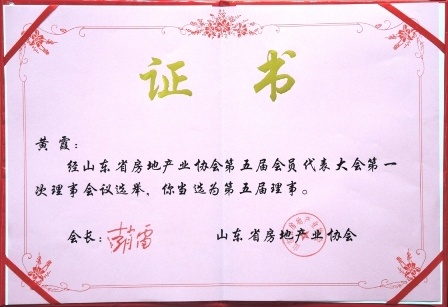 证书
黄霞：
经山东省房地产业协会第五届会员代表大会第一
次理事会议选举，你当选为第五届理事。
会长：
山东省房地产业协会